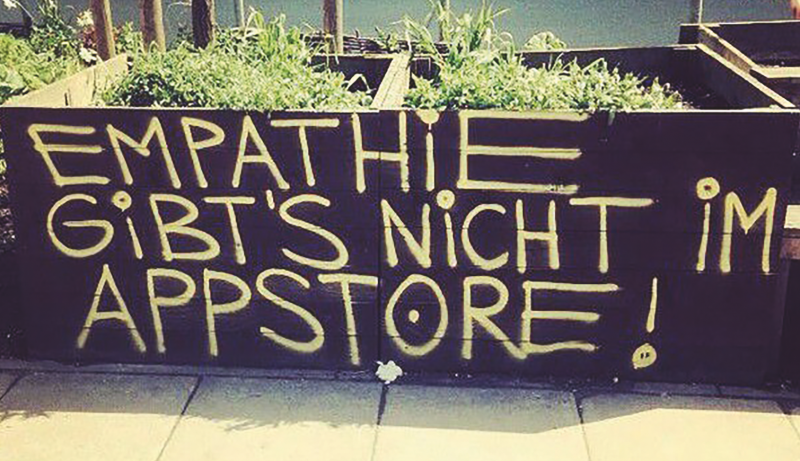 EMPATHiE
GiBT'S NiCHT iM
APPSTORE!